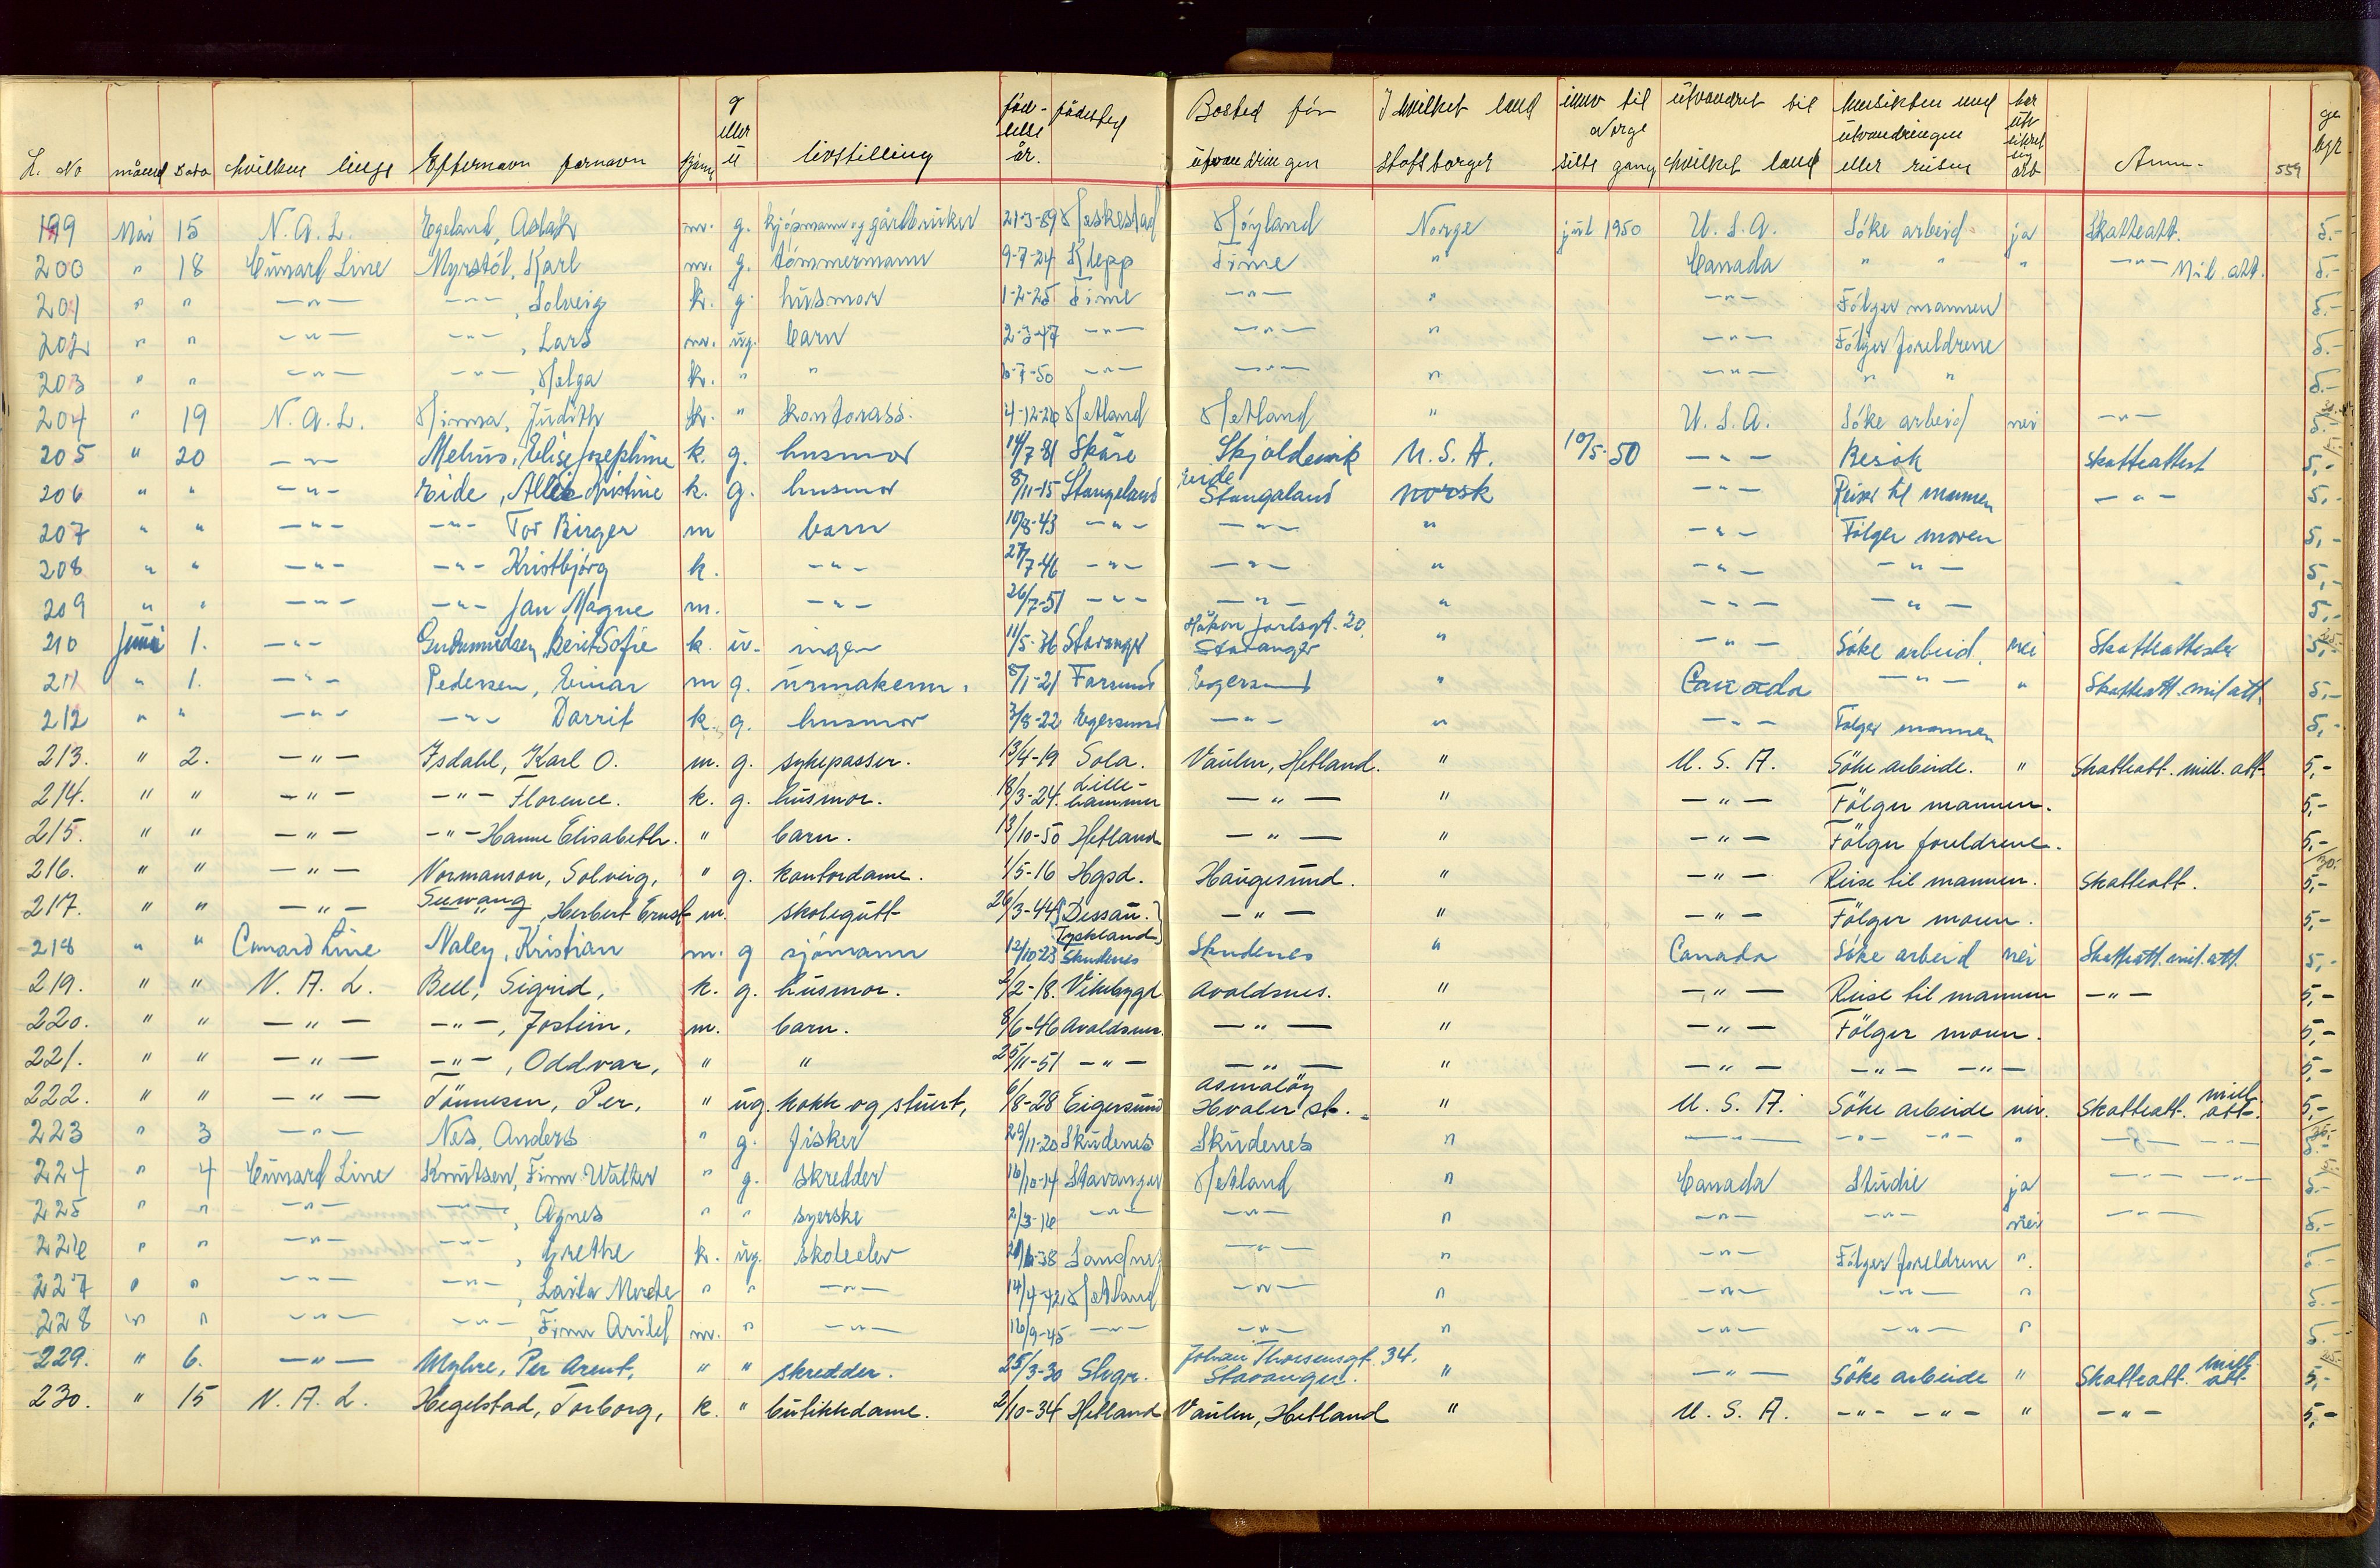 L. No måned Dato hvilken linje Efternavn fornavn kjønn g eller u livstilling födelse år. födested Bosted för utvandringen I hvilket land statsborger innv til Norge siste gang utvandret til hvilket land hensikten med utvandringen eller reisen har utv sikret sig arb Anm. 559 ge byr
199 Mai 15 N. A. L. Egeland, Aslak m. g. kjöpmann og gårdbruker 21-3-89 Heskestad Höyland Norge juli 1950 U. S. A. Söke arbeid ja Skatteatt. 5.-
200 " 18 Cunard Line Myrstöl, Karl m. g. tömmermann 9-7-24 Klepp Time " Canada " " " -"- Mil. att. 5.-
201 " " -"- -"-, Solveig k. g. husmor 1-2-25 Time -"- " -"- Fölger mannen 5.-
202 " " -"- -"-, Lars m. ug. barn 2-3-47 -"- -"- " -"- Fölger foreldrene 5.-
203 " " -"- -"-, Helga k. " " 6-7-50 -"- -"- " -"- " " 5.-
204 " 19 N. A. L. Hinna, Judith k. " kontorass. 4-12-26 Hetland Hetland " U. S. A. Söke arbeid nei -"- 5.-
205 " 20 -"- Melhus, Elise Josephine k. g. husmor 14/7-81 Skåre Skjoldevik U. S. A. 10/5-50 -"- Besök Skatteattest 5,-
206 " " -"- Eide, Alles Kristine k. g. husmor 8/11-15 Stangeland Eide Stangaland norsk -"- Reiser til mannen -"- 5,-
207 " " -"- -"- Tor Birger m barn 10/8-43 -"- -"- " -"- Fölger moren 5,-
208 " " -"- -"- Kristbjörg k. -"- 27/7-46 -"- -"- " -"- -"- 5,-
209 " " -"- -"- Jan Magne m. -"- 26/7-51 -"- -"- " -"- -"- 5,-
210 Juni 1. -"- Gudmundsen, Berit Sofie k. u. ingen 11/5-36 Stavanger Håkon Jarlsgt. 20, Stavanger " -"- Söke arbeid, nei Skatteattester 5,-
211 " 1. -"- Pedersen, Einar m g. urmakerm. 8/1-21 Farsund Egersund " Canada -"- " Skatteatt. mil att. 5,-
212 " " -"- -"- Dorrit k. g. husmor 3/8-22 Egersund -"- " -"- Følger mannen 5,-
213. " 2. -"- Isdahl, Karl O. m. g. sykepasser. 13/4-19 Sola. Vaulen, Hetland. " U. S. A. Söke arbeide. " Skatteatt. mill. att 5,-
214. " " -"- -"- Florence. k. g. husmor. 18/3-24. Lille-hammer -"- " -"- Fölger mannen. 5,-
215. " " -"- -"- Hanne Elisabeth. " barn. 13/10-50 Hetland -"- " -"- Fölger foreldrene. 5,-
216. " " -"- Normanson, Solveig, " g. kontordame. 1/5-16 Hgsd. Haugesund. " -"- Reise til mannen. Skatteatt. 5,-
217. " " -"- Seewang, Herbert Ernst m. skolegutt 26/3-44 (Dessau. Tyskland) -"- " -"- Fölger moren. 5,-
218 " " Cunard Line Naley, Kristian m. g sjömann 12/10-23 Skudenes Skudenes " Canada Söke arbeid nei Skatteatt. mil. att. 5,-
219. " " N. A. L. Bell, Sigrid, k. g. husmor. 2/2-18. Vikebygd Avaldsnes. " -"- Reise til mannen -"- 5,-
220. " " -"- -"-, Jostein, m. barn. 8/6-46 Avaldsnes. -"- " -"- Fölger moren. 5,-
221. " " -"- -"-, Oddvar, " " 25/11-51 -"- -"- " -"- -"- -"- 5,-
222. " " -"- Tönnesen, Per, " ug. kokk og stuert, 6/8-28 Eigersund Asmalöy Hvaler st. " U. S. A. Söke arbeide nei. Skatteatt. mill att. 5,-
223 " 3 -"- Nes, Anders " g. fisker 29/11-20 Skudenes Skudenes " -"- -"- -"- " -"- -"- 5.-
224 " 4 Cunard Line Knutsen, Finn Walter " g. skredder 16/10-14 Stavanger Hetland " Canada Studie ja -"- -"- 5.-
225 " " -"- -"-, Agnes " " syerske 2/3-16 -"- -"- " -"- -"- nei -"- 5.-
226 " " -"- -"-, Grethe k. ug. skoleelev 29/6-38 Sandnes -"- " -"- Fölger foreldrene " 5.-
227 " " -"- -"-, Laila Merete " " -"- 14/4-42 Hetland -"- " -"- -"- " 5.-
228 " " -"- -"-, Finn Arild m. " -"- 16/9-45 -"- -"- " -"- -"- " 5.-
229. " 6. -"- Myhre, Per Arent, " " skredder. 25/3-30 Stvgr. Johan Thorsensgt. 34, Stavanger. " -"- Söke arbeide " Skatteatt. mill. att 5,-
230. " 15 N. A. L. Hegelstad, Torborg, k. " butikkdame. 2/10-34 Hetland Vaulen, Hetland " U. S. A. -"- -"- " -"- 5,-